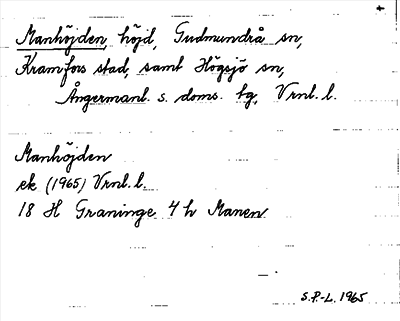 Manhöjden, höjd, Gudmundrå sn,
Kramfors stad, samt Högsjö sn,
Ångermanl. s. doms. tg, Vrnl. l.
Manhöjden
ek (1965) Vrnl. l.
18 H Graninge 4 h Manen
S.P.-L. 1965